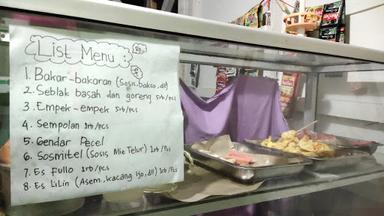 List Menu :
1. Bakar-bakaran (Sosis, bakso, dll)
2. Seblak basah dan goreng 5rb/pcs
3. Empek-empek 5rb/pcs
4. Sempolan 2rb/pcs
5. Gendar Pecel
6. Sosmitel (Sosis Mie Telur) 2rb/pcs
7. Es Fullo 2rb/pcs
8. Es LiLin (Asem, Kacang Ijo, dll)